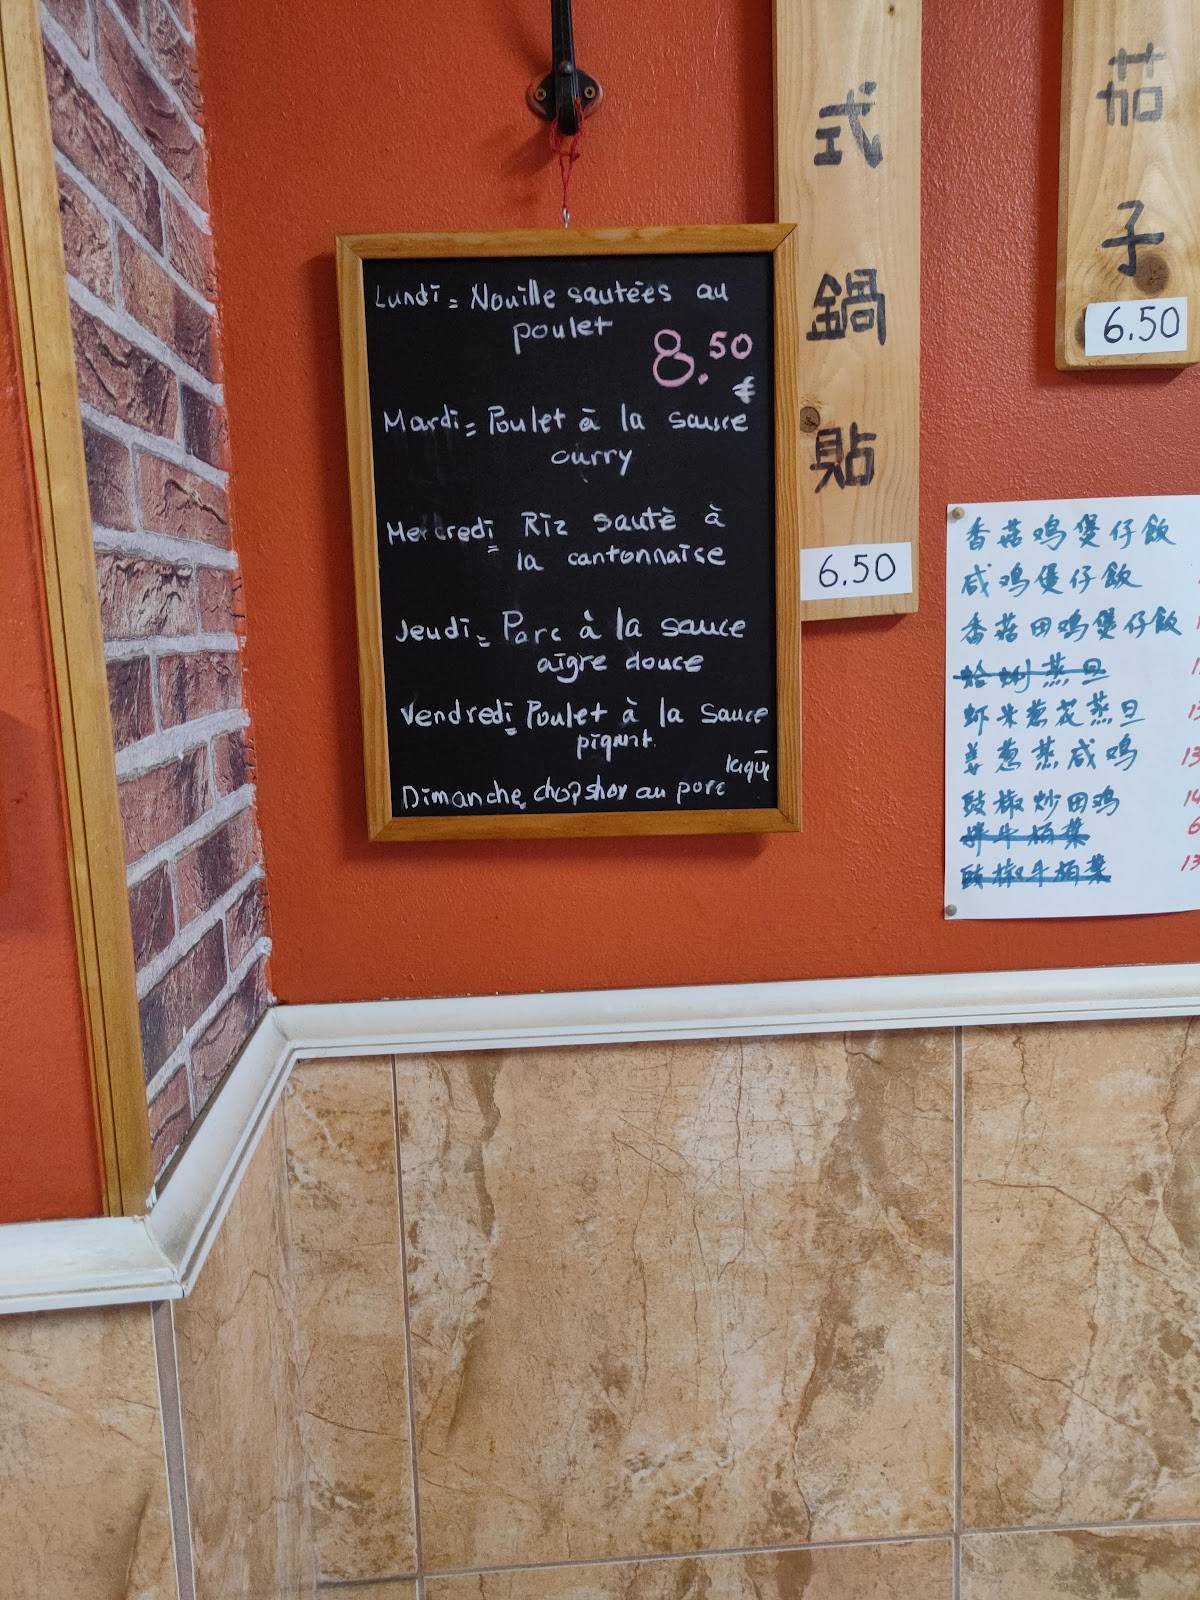 Lundi = Nouille sautées au
poulet
8.50
€
Mardi = Poulet à la sauce
curry
Mercredi = Riz sauté à
la cantonnaise
Jeudi = Parc à la sauce
aigre douce
Vendredi = Poulet à la sauce
piqant.
laqué
Dimanche, chopshoy au porc
式鍋貼
6.50
茄子
6.50
香菇鸡煲仔飯
咸鸡煲仔飯
香菇田鸡煲仔飯
蒸旦
虾米葱花蒸旦
姜葱蒸咸鸡
豉椒炒田鸡
豉椒牛栢葉